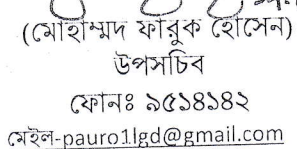 (মোহাম্মদ ফারুক হোসেন)
উপসচিব
ফোনঃ ৯৫১৪১৪২
মেইল-pauro1lgd@gmail.com